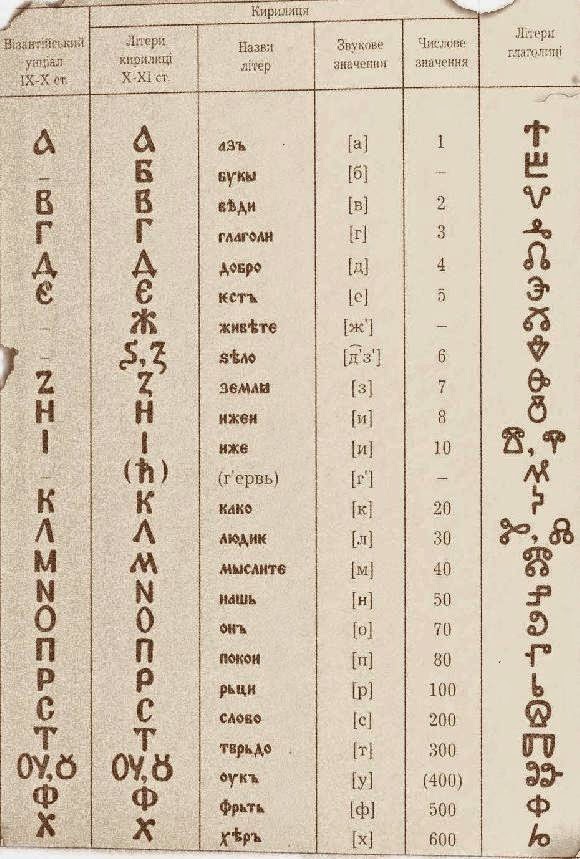 Кирилиця
Візантійський унціал ІХ-Х ст. Літери кирилиці Х-ХІ ст. Назви літер Звукове значення Числове значення Літери глаголиці
А А азъ [а] 1 Ⰰ
– Б букы [б] – Ⰱ
В В вѣди [в] 2 Ⰲ
Г Г глаголи [г] 3 Ⰳ
Д Д добро [д] 4 Ⰴ
Є Є ѥстъ [е] 5 Ⰵ
– Ж живѣте [ж'] – Ⰶ
– Ѕ, Ꙁ ѕѣло [д͡'з'] 6 Ⰷ
Z Ꙁ землꙗ [з] 7 Ⰸ
Н Н ижеи [и] 8 Ⰹ
І І иже [и] 10 Ⰻ, Ⰺ
(ћ) (г'ервь) [г'] – Ⰼ
К К како [к] 20 Ⰽ
Л Л людик [л] 30 Ⰾ
М М мыслите [м] 40 Ⰿ
N N нашь [н] 50 Ⱀ
О О онъ [о] 70 Ⱁ
П П покои [п] 80 Ⱂ
Р Р рьци [р] 100 Ⱃ
С С слово [с] 200 Ⱄ
Т Т тврьдо [т] 300 Ⱅ
ОУ, Ȣ ОУ, Ȣ оукъ [у] (400) Ⱆ
Ф Ф фрьть [ф] 500 Ⱇ
Х Х хѣръ [х] 600 Ⱈ